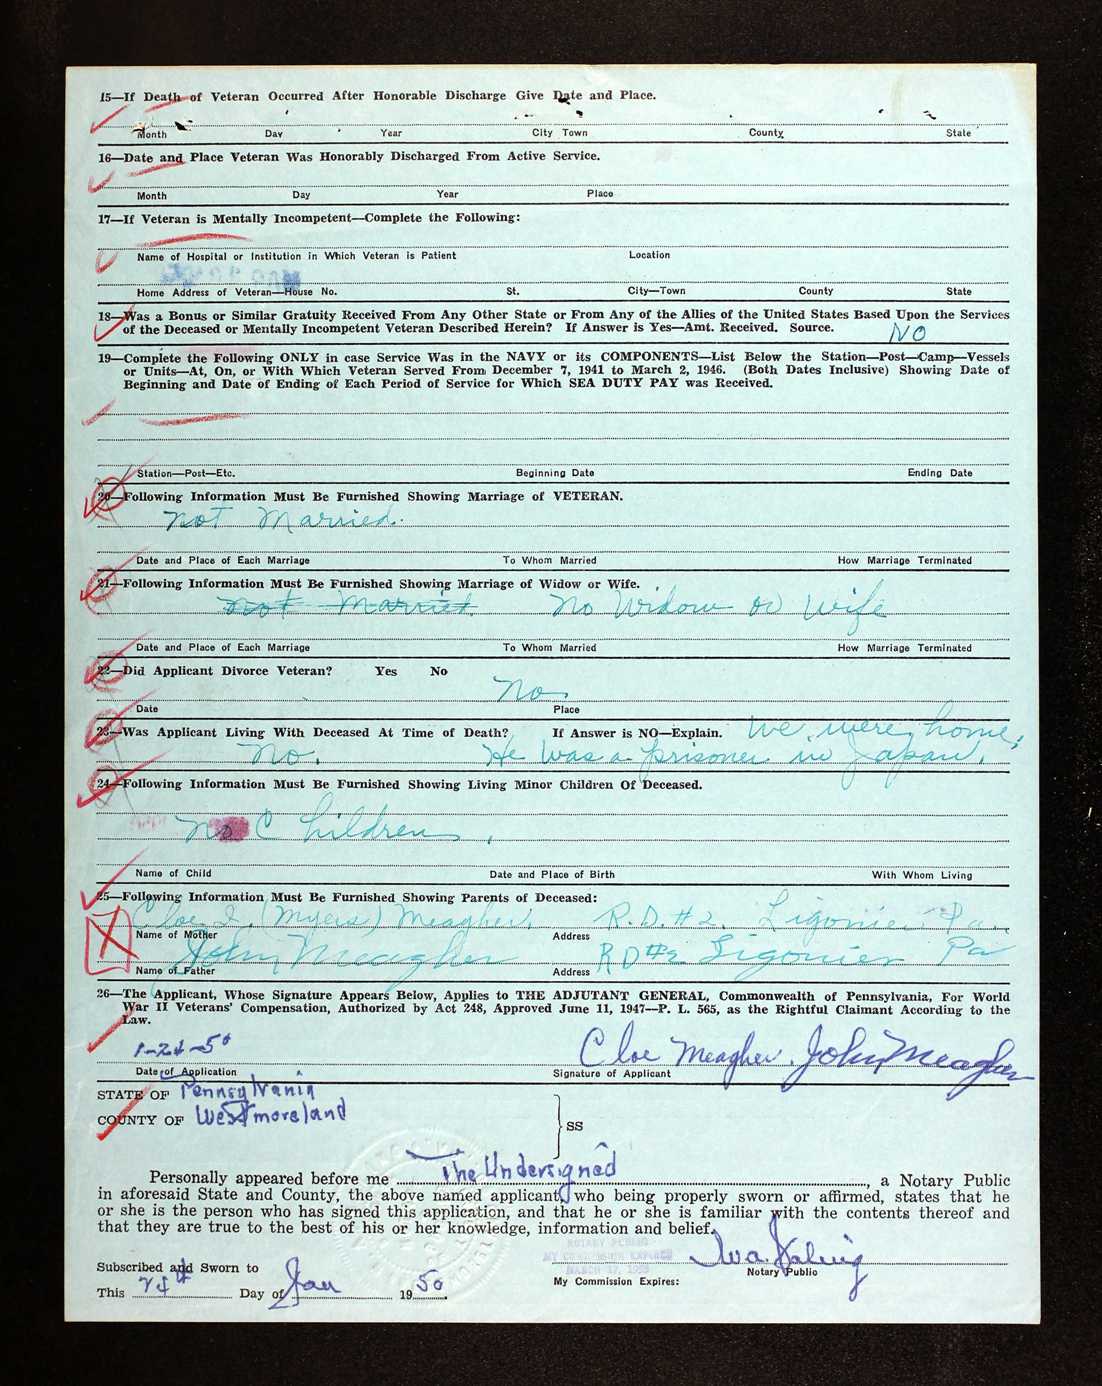 15—If Death of Veteran Occurred After Honorable Discharge Give Date and Place.
Month Day Year City Town County State
16—Date and Place Veteran Was Honorably Discharged From Active Service.
Month Day Year Place
17—If Veteran is Mentally Incompetent—Complete the Following:
Name of Hospital or Institution in Which Veteran is Patient Location
Home Address of Veteran—House No. St. City—Town County State
18—Was a Bonus or Similar Gratuity Received From Any Other State or From Any of the Allies of the United States Based Upon the Services
of the Deceased or Mentally Incompetent Veteran Described Herein? If Answer is Yes—Amt. Received. Source.
NO
19—Complete the Following ONLY in case Service Was in the NAVY or its COMPONENTS—List Below the Station—Post—Camp—Vessels
or Units—At, On, or With Which Veteran Served From December 7, 1941 to March 2, 1946. (Both Dates Inclusive) Showing Date of
Beginning and Date of Ending of Each Period of Service for Which SEA DUTY PAY was Received.
Station—Post—Etc. Beginning Date Ending Date
20—Following Information Must Be Furnished Showing Marriage of VETERAN.
not Married.
Date and Place of Each Marriage To Whom Married How Marriage Terminated
21—Following Information Must Be Furnished Showing Marriage of Widow or Wife.
not Married no Widow or Wife
Date and Place of Each Marriage To Whom Married How Marriage Terminated
22—Did Applicant Divorce Veteran? Yes No
no.
Date Place
23—Was Applicant Living With Deceased At Time of Death? If Answer is NO—Explain. We were home;
No. He was a prisoner in Japan.
24—Following Information Must Be Furnished Showing Living Minor Children Of Deceased.
no Children.
Name of Child Date and Place of Birth With Whom Living
25—Following Information Must Be Furnished Showing Parents of Deceased:
Cloe I. (Myers) Meagher. R.D. #2. Ligonier Pa.
Name of Mother Address
John Meagher RD #2 Ligonier Pa
Name of Father Address
26—The Applicant, Whose Signature Appears Below, Applies to THE ADJUTANT GENERAL, Commonwealth of Pennsylvania, For World
War II Veterans' Compensation, Authorized by Act 248, Approved June 11, 1947—P. L. 565, as the Rightful Claimant According to the
Law.
1-24-50 Cloe Meagher. John Meagher
Date of Application Signature of Applicant
STATE OF Pennsylvania
COUNTY OF Westmoreland
SS
Personally appeared before me The Undersigned, a Notary Public
in aforesaid State and County, the above named applicant, who being properly sworn or affirmed, states that he
or she is the person who has signed this application, and that he or she is familiar with the contents thereof and
that they are true to the best of his or her knowledge, information and belief.
NOTARY PUBLIC
MY COMMISSION EXPIRES
Subscribed and Sworn to
Notary Public
My Commission Expires:
This 24th Day of Jan 1950.